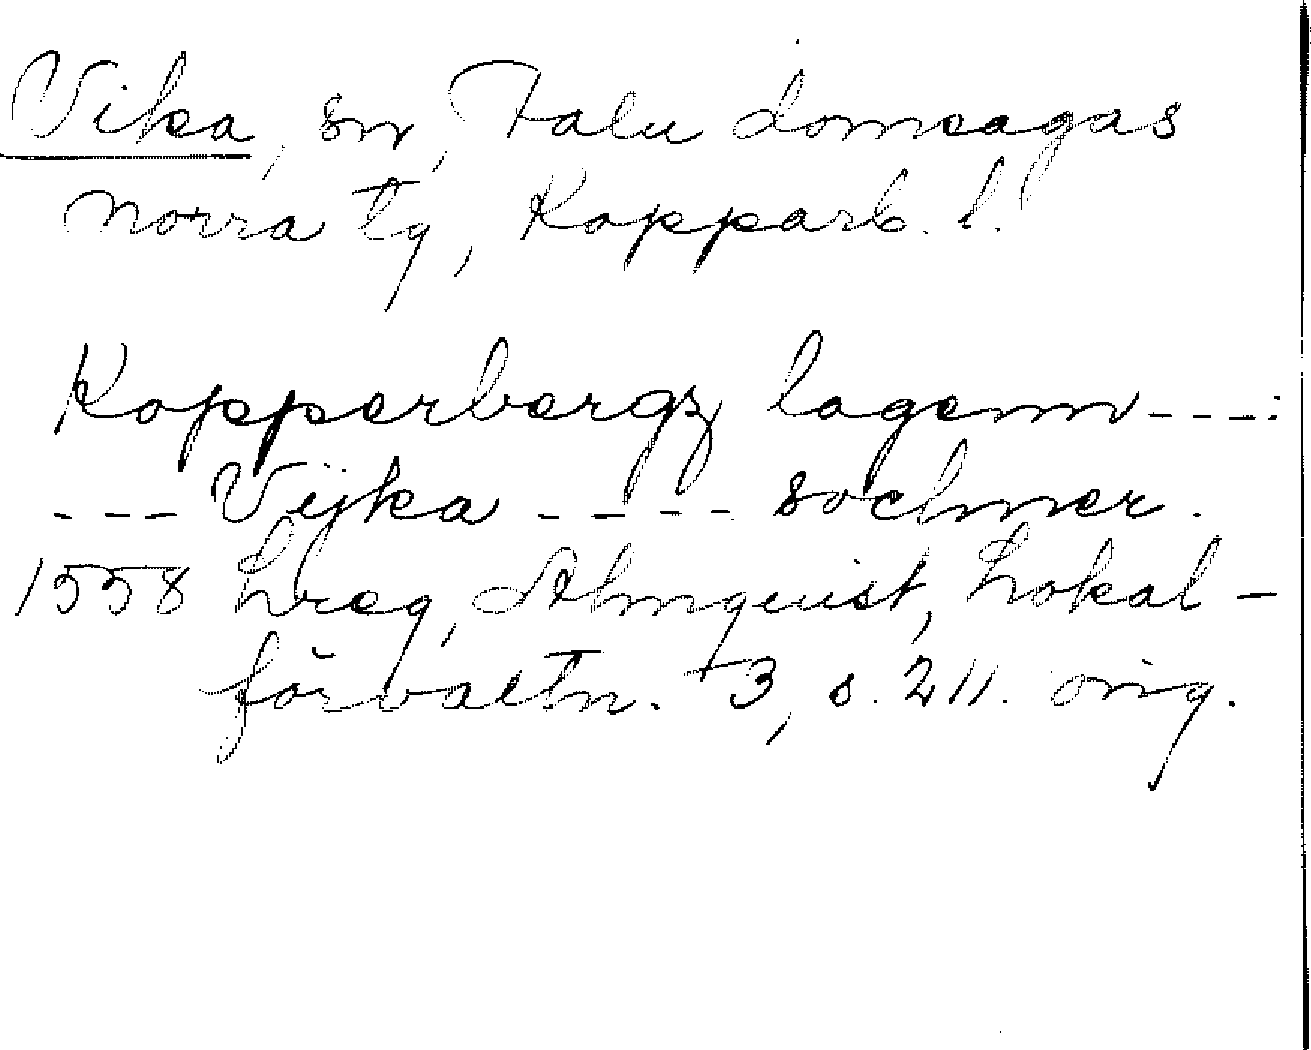 Vika, sn, Falu domsagas
norra tg, Kopparb. l.
Kopperbergz lagenn---:
--- Vijka ---- sochner.
1558 Lreg, Almquist, Lokal-
förvaltn. 3, s. 211. orig.